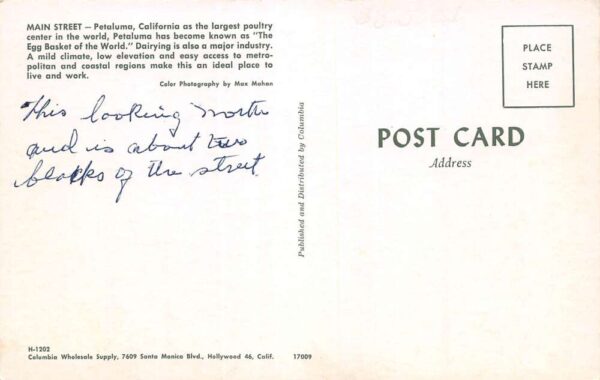 MAIN STREET — Petaluma, California as the largest poultry
center in the world, Petaluma has become known as "The
Egg Basket of the World." Dairying is also a major industry.
A mild climate, low elevation and easy access to metro-
politan and coastal regions make this an ideal place to
live and work.
Color Photography by Max Mahan
This looking north
and is about two
blocks of the street.
H-1202
Columbia Wholesale Supply, 7609 Santa Monica Blvd., Hollywood 46, Calif.
17009
Published and Distributed by Columbia
PLACE
STAMP
HERE
POST CARD
Address